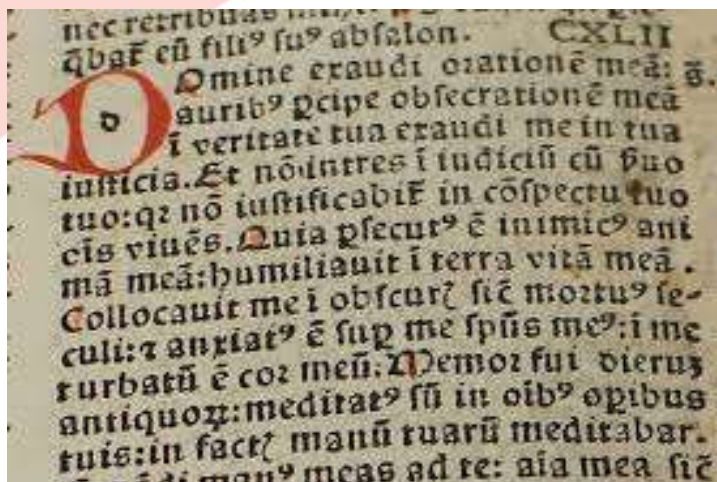 nec retribuas
q̄bat᷑ eū fili⁹ su⁹ absalon. CXLII
Domine exaudi orationē meā: ḡ.
aurib⁹ ꝑcipe obsecrationē meā
ī veritate tua exaudi me in tua
iusticia. Et nō intres ī iudiciū cū ẜuo
tuo: qꝛ nō iustificabit᷑ in cōspectu tuo
oīs viuēs. Quia ꝑsecut⁹ ē inimic⁹ ani
mā meā: humiliauit ī terra vitā meā.
Collocauit me ī obscurꝭ sic̄ mortu⁹ se-
culi: ⁊ anxiat⁹ ē suꝑ me sp̄us me⁹: ī me
turbatū ē cor meū. Memor fui dieruꝫ
antiquoꝝ: meditat⁹ sū in oīb⁹ oꝑibus
tuis: in factꝭ manū tuarū meditabar.
man⁹ meas ad te: aīa mea sic̄